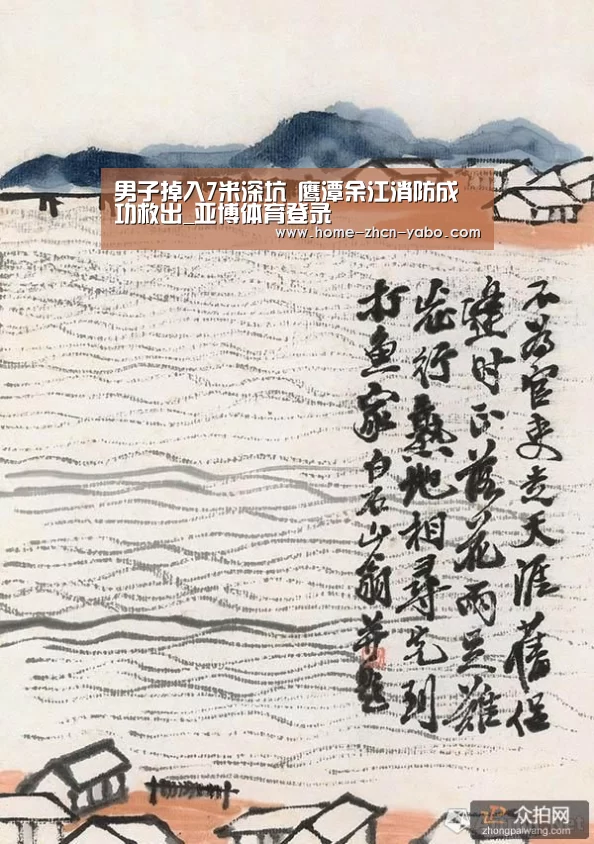 男子掉入7米深坑 鹰潭余江消防成
功救出_亚博体育登录
www.home-zhcn-yabo.com
不為官吏走天涯舊侶
逢时正落花兩足難
忘行熟地相尋先到
打魚家白石山翁并題
众拍网
zhongpaiwang.com